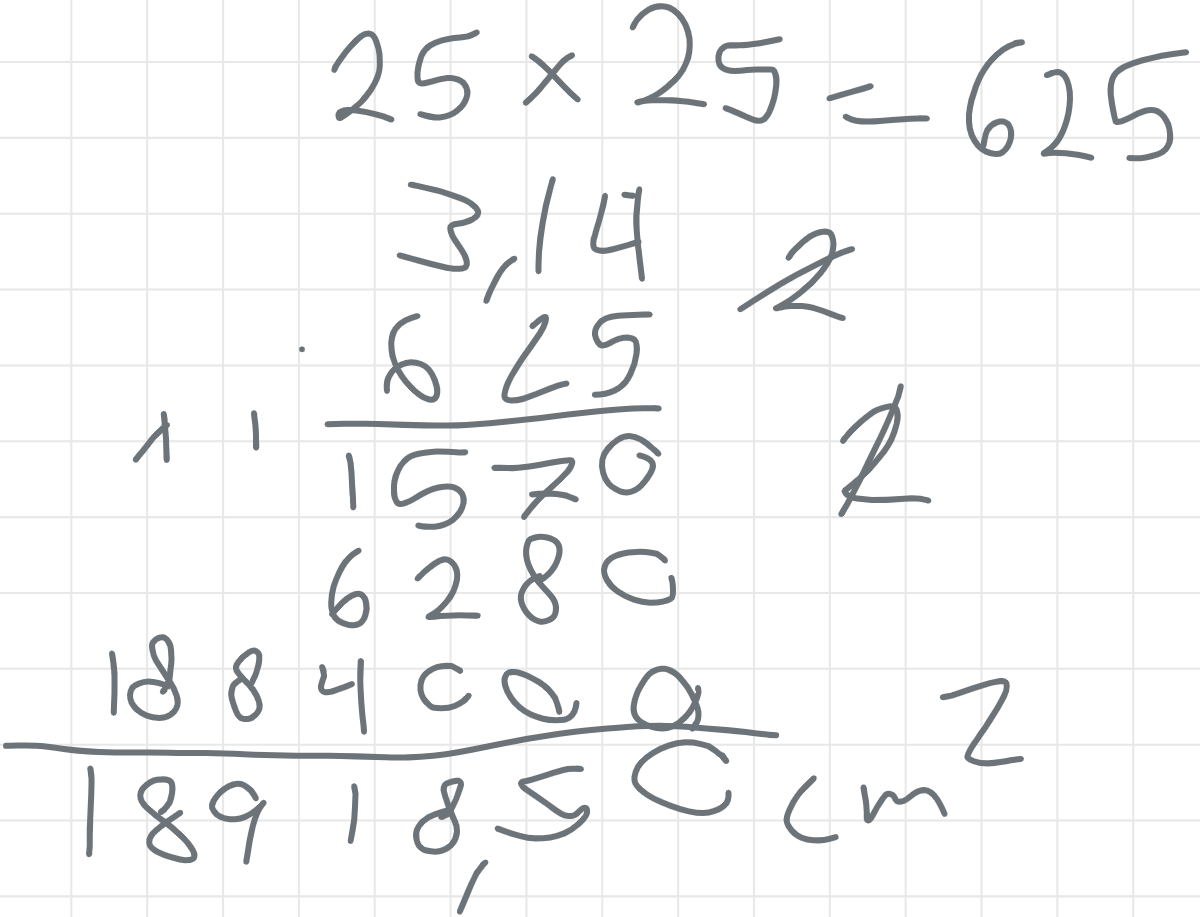 25 × 25 = 625
3,14
2
625
1 1
1570
2
6280
1884000
18918,50 cm²